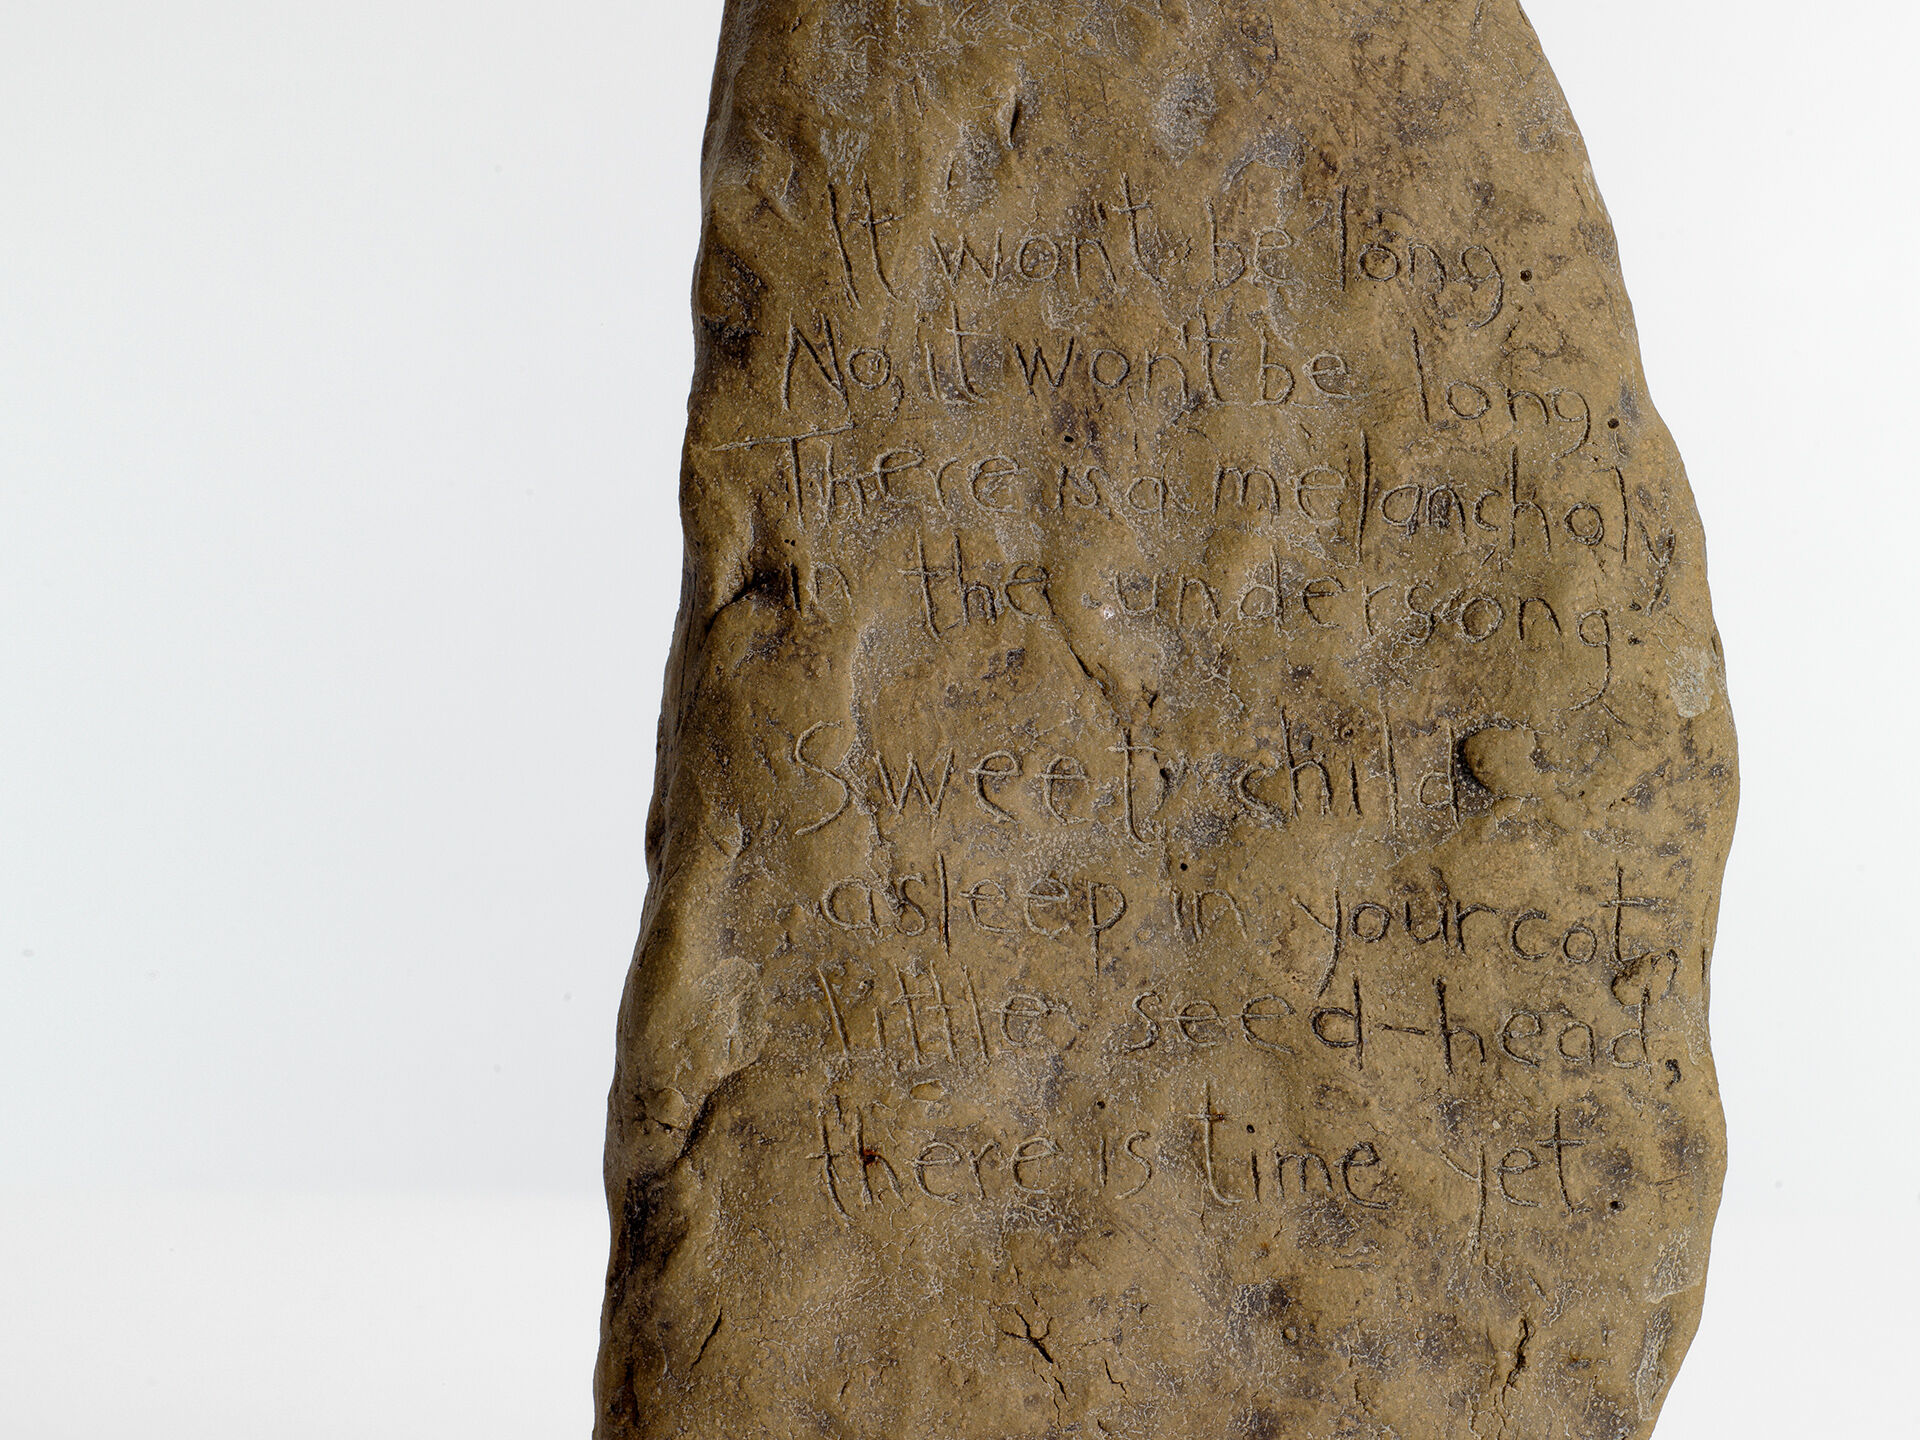 It won't be long.
No, it won't be long.
There is a melancholy
in the undersong.
Sweet child
asleep in your cot,
little seed-head,
there is time yet.